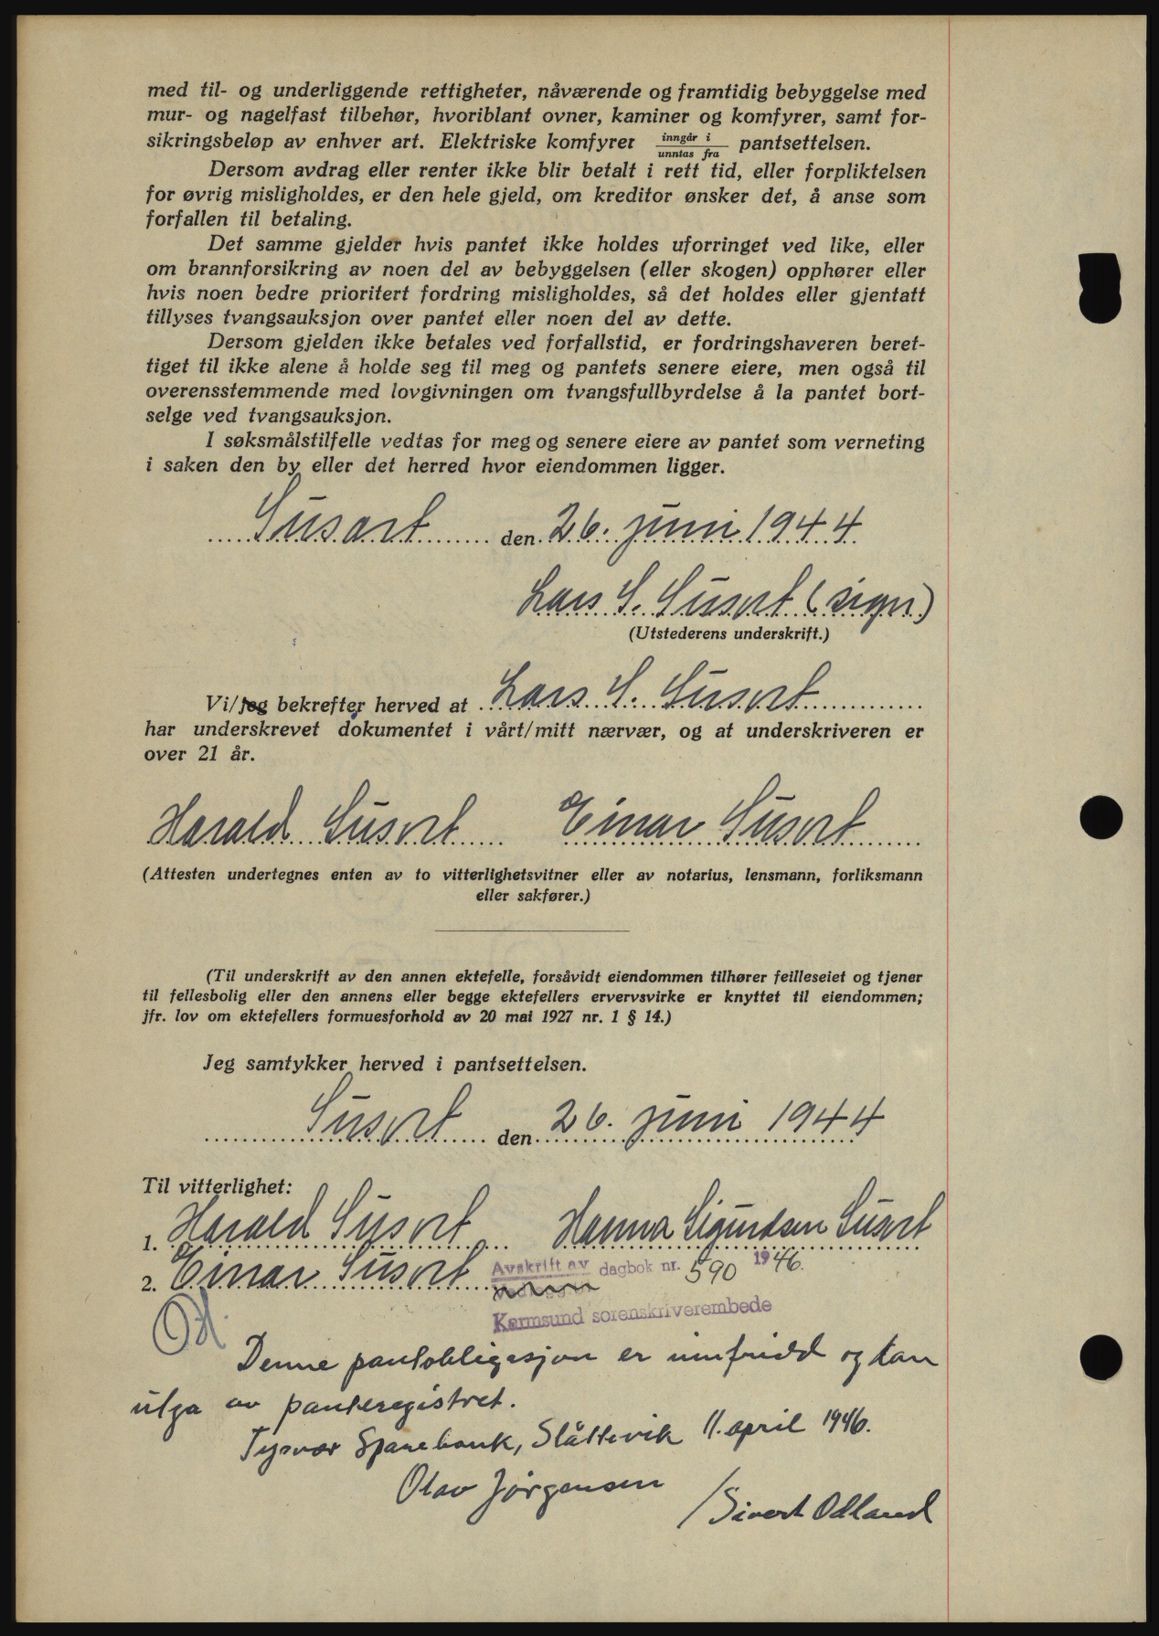 med til- og underliggende rettigheter, nåværende og framtidig bebyggelse med
mur- og nagelfast tilbehør, hvoriblant ovner, kaminer og komfyrer, samt for-
sikringsbeløp av enhver art. Elektriske komfyrer inngår i / unntas fra pantsettelsen.
Dersom avdrag eller renter ikke blir betalt i rett tid, eller forpliktelsen
for øvrig misligholdes, er den hele gjeld, om kreditor ønsker det, å anse som
forfallen til betaling.
Det samme gjelder hvis pantet ikke holdes uforringet ved like, eller
om brannforsikring av noen del av bebyggelsen (eller skogen) opphører eller
hvis noen bedre prioritert fordring misligholdes, så det holdes eller gjentatt
tillyses tvangsauksjon over pantet eller noen del av dette.
Dersom gjelden ikke betales ved forfallstid, er fordringshaveren beret-
tiget til ikke alene å holde seg til meg og pantets senere eiere, men også til
overensstemmende med lovgivningen om tvangsfullbyrdelse å la pantet bort-
selge ved tvangsauksjon.
I søksmålstilfelle vedtas for meg og senere eiere av pantet som verneting
i saken den by eller det herred hvor eiendommen ligger.
Susort den 26. juni 1944
Lars S. Susort (sign)
(Utstederens underskrift.)
Vi/jeg bekrefter herved at Lars S. Susort
har underskrevet dokumentet i vårt/mitt nærvær, og at underskriveren er
over 21 år.
Harald Susort Einar Susort
(Attesten undertegnes enten av to vitterlighetsvitner eller av notarius, lensmann, forliksmann
eller sakfører.)
(Til underskrift av den annen ektefelle, forsåvidt eiendommen tilhører feilleseiet og tjener
til fellesbolig eller den annens eller begge ektefellers ervervsvirke er knyttet til eiendommen;
jfr. lov om ektefellers formuesforhold av 20 mai 1927 nr. 1 § 14.)
Jeg samtykker herved i pantsettelsen.
Susort den 26. juni 1944
Til vitterlighet:
1. Harald Susort Hanna Sigurdsen Susort
2. Einar Susort Avskrift av dagbok nr. 590 1946.
Karmsund sorenskriverembede
Denne pantobligasjon er innfridd og kan
utga av panteregistret.
Tysvær Sparebank, Slåttevik 11. april 1946.
Olav Jørgensen
/Sivert Odland